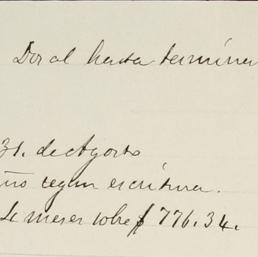 Dor al hasta termina
31. de Agosto
año segun escritura.
de meses sobre $ 776.34.